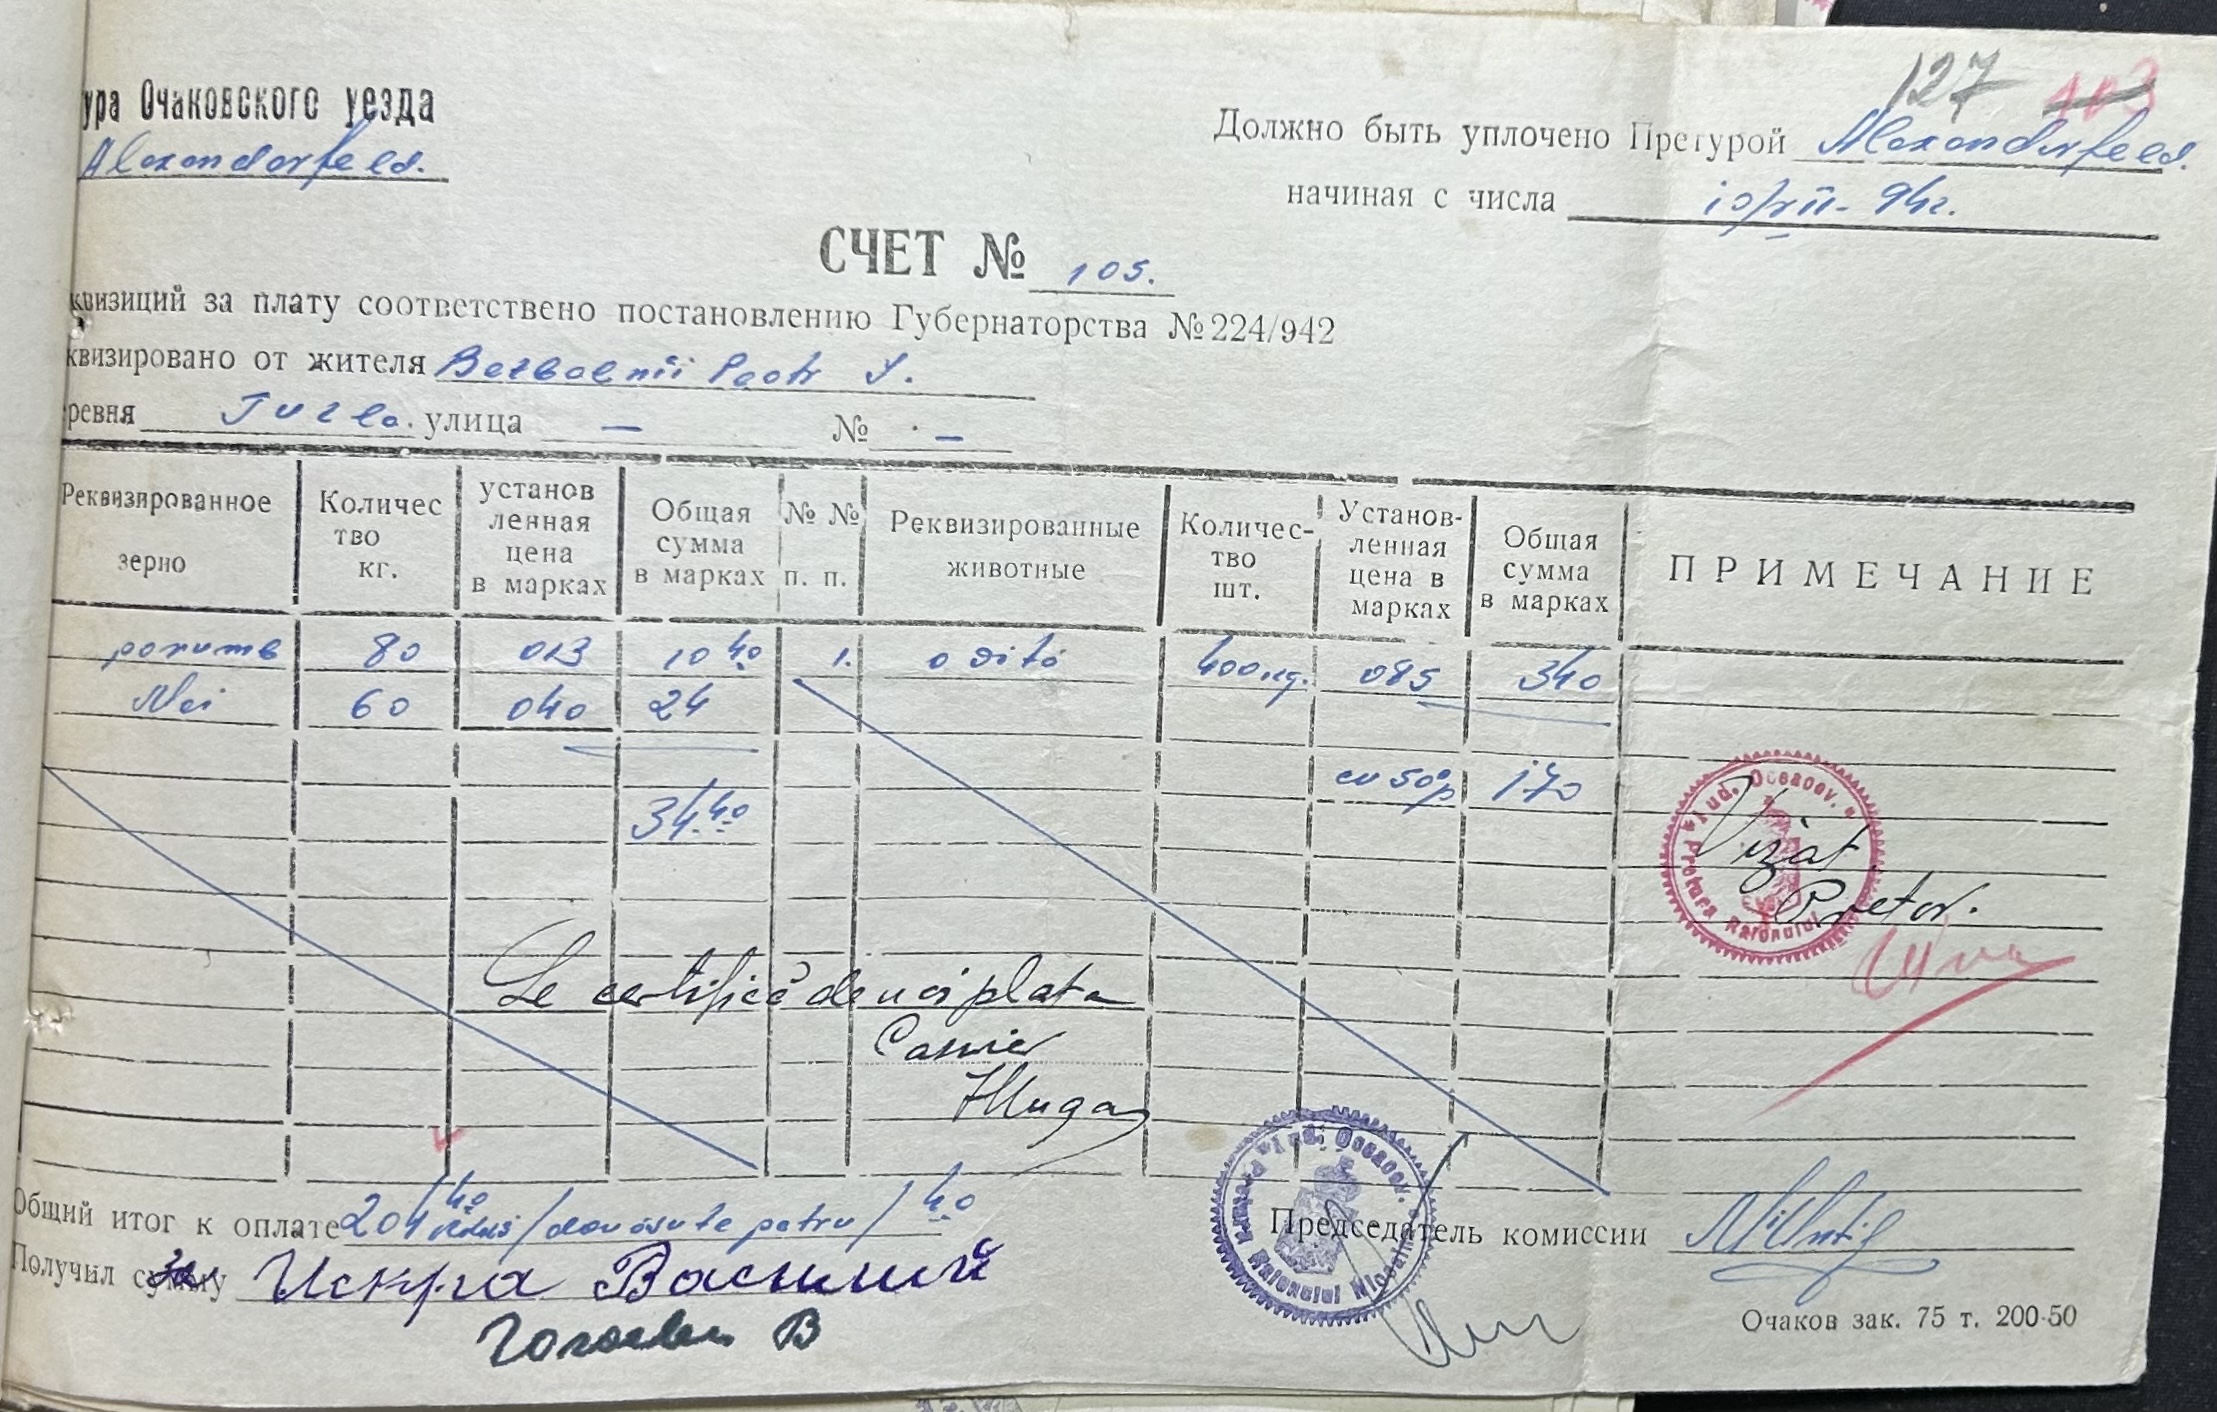 127 103
ура Очаковского уезда
Alexandorfeld.
Должно быть уплочено Претурой Alexandorfeld.
начиная с числа 10/XII- 942.
СЧЕТ № 105.
квизиций за плату соответствено постановлению Губернаторства № 224/942
квизировано от жителя Petr
ревня улица — № —
Реквизированное зерно Количес тво кг. установ ленная цена в марках Общая сумма в марках № № п. п. Реквизированные животные Количес- тво шт. Установ- ленная цена в марках Общая сумма в марках ПРИМЕЧАНИЕ
80 013 10 40 1. 400 kg. 085 340
Mei 60 040 24
34.40 cu 50% 170
Pretura Raionului Jud. Oceacov
Vizat
Pretor.
Se certifică de noi plata
Casier
Общий итог к оплате 204 40 /douăsute patru/ 40
Получил сумму Искра Василий
В
Председатель комиссии
Очаков зак. 75 т. 200-50